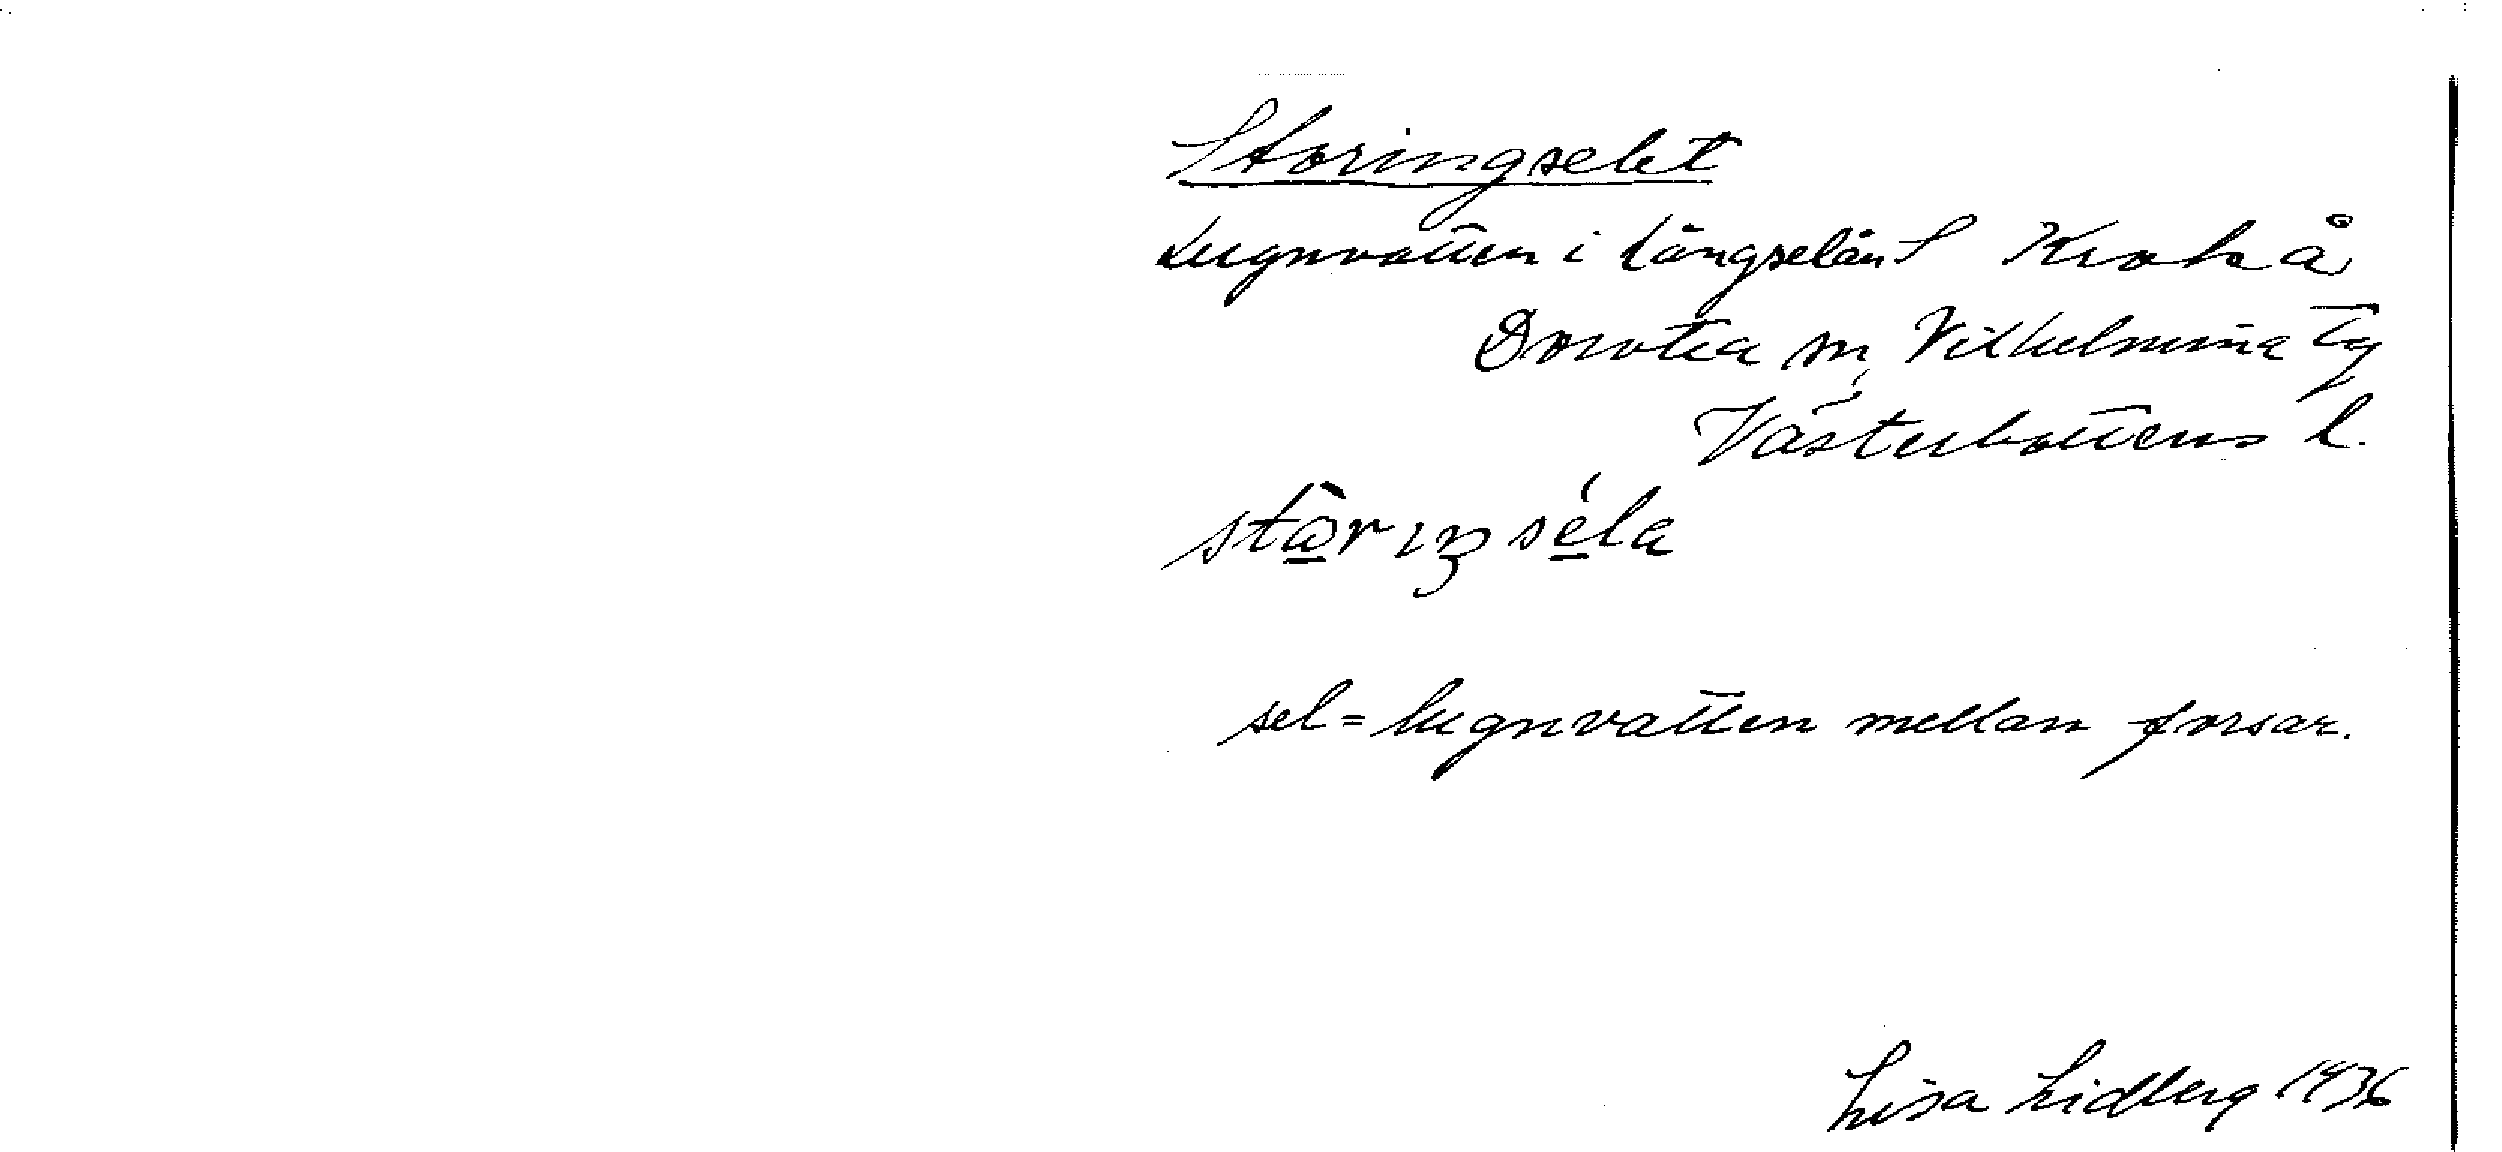 Storingselet
Lugnvatten i Långselån S Krokå
Dorotea sn, Vilhelmina tg
Västerbottens l.
sel = lugnvatten mellan forsar.
Lisa Lidberg 1936